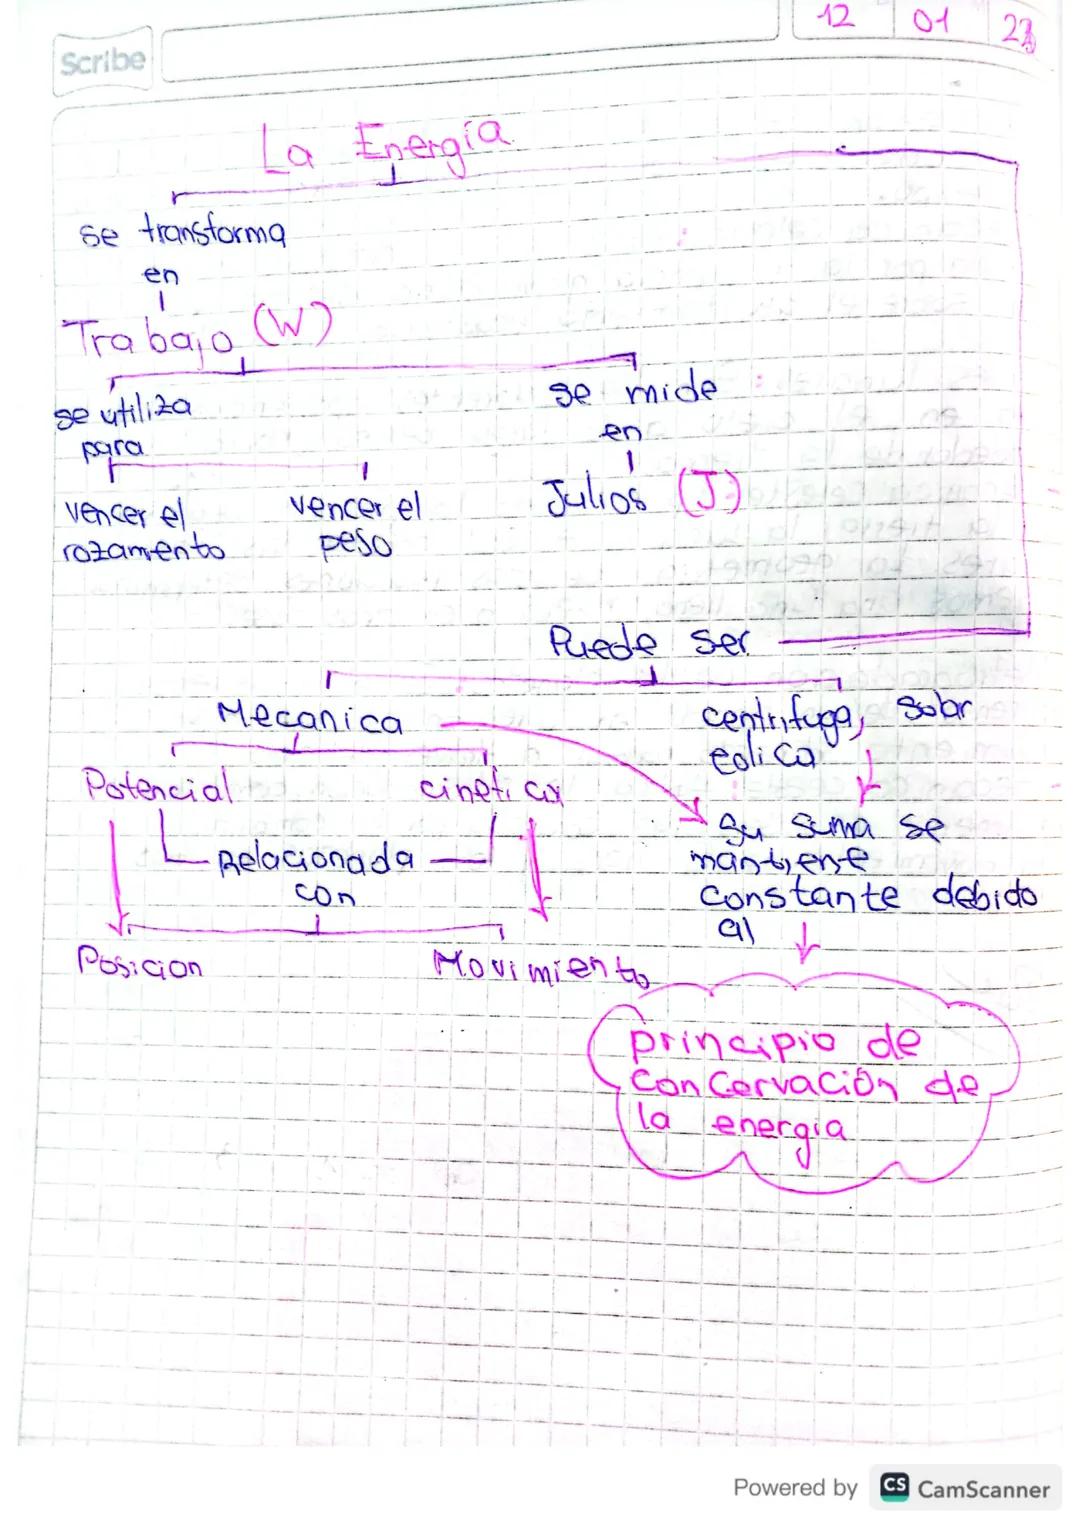 12 01 23
Scribe
La Energía
se transforma
en
Trabajo (W)
se utiliza
para
se mide
en
vencer el
rozamento
vencer el
peso
Julios (J)
Puede ser
Mecanica
centrifuga, solar
eolica
Potencial
cinetica
Relacionada
con
Su suma se
mantiene
constante debido
al
Posicion
Movimiento
principio de
Concervación de
la energia
Powered by CS CamScanner